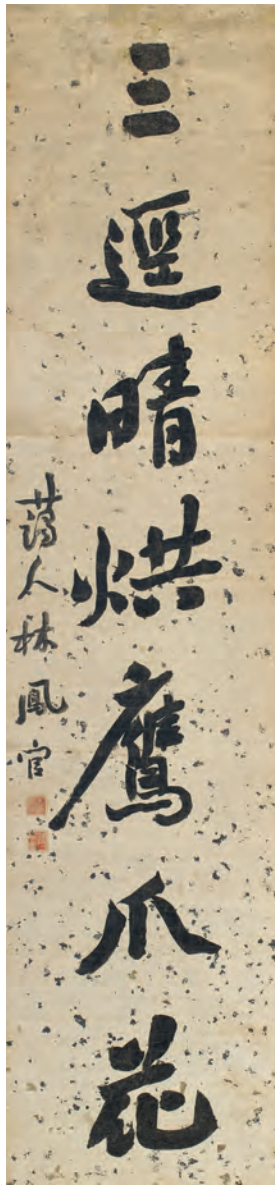 三逕晴烘鷹爪花
藹人林鳳官